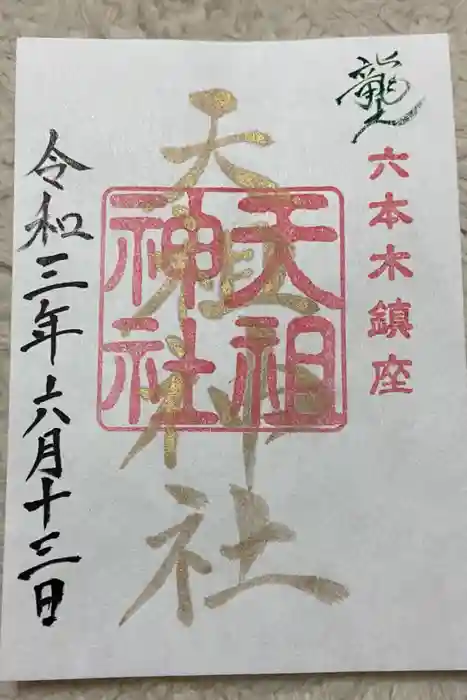 六本木鎮座
天祖神社
天祖
神社
令和三年六月十三日